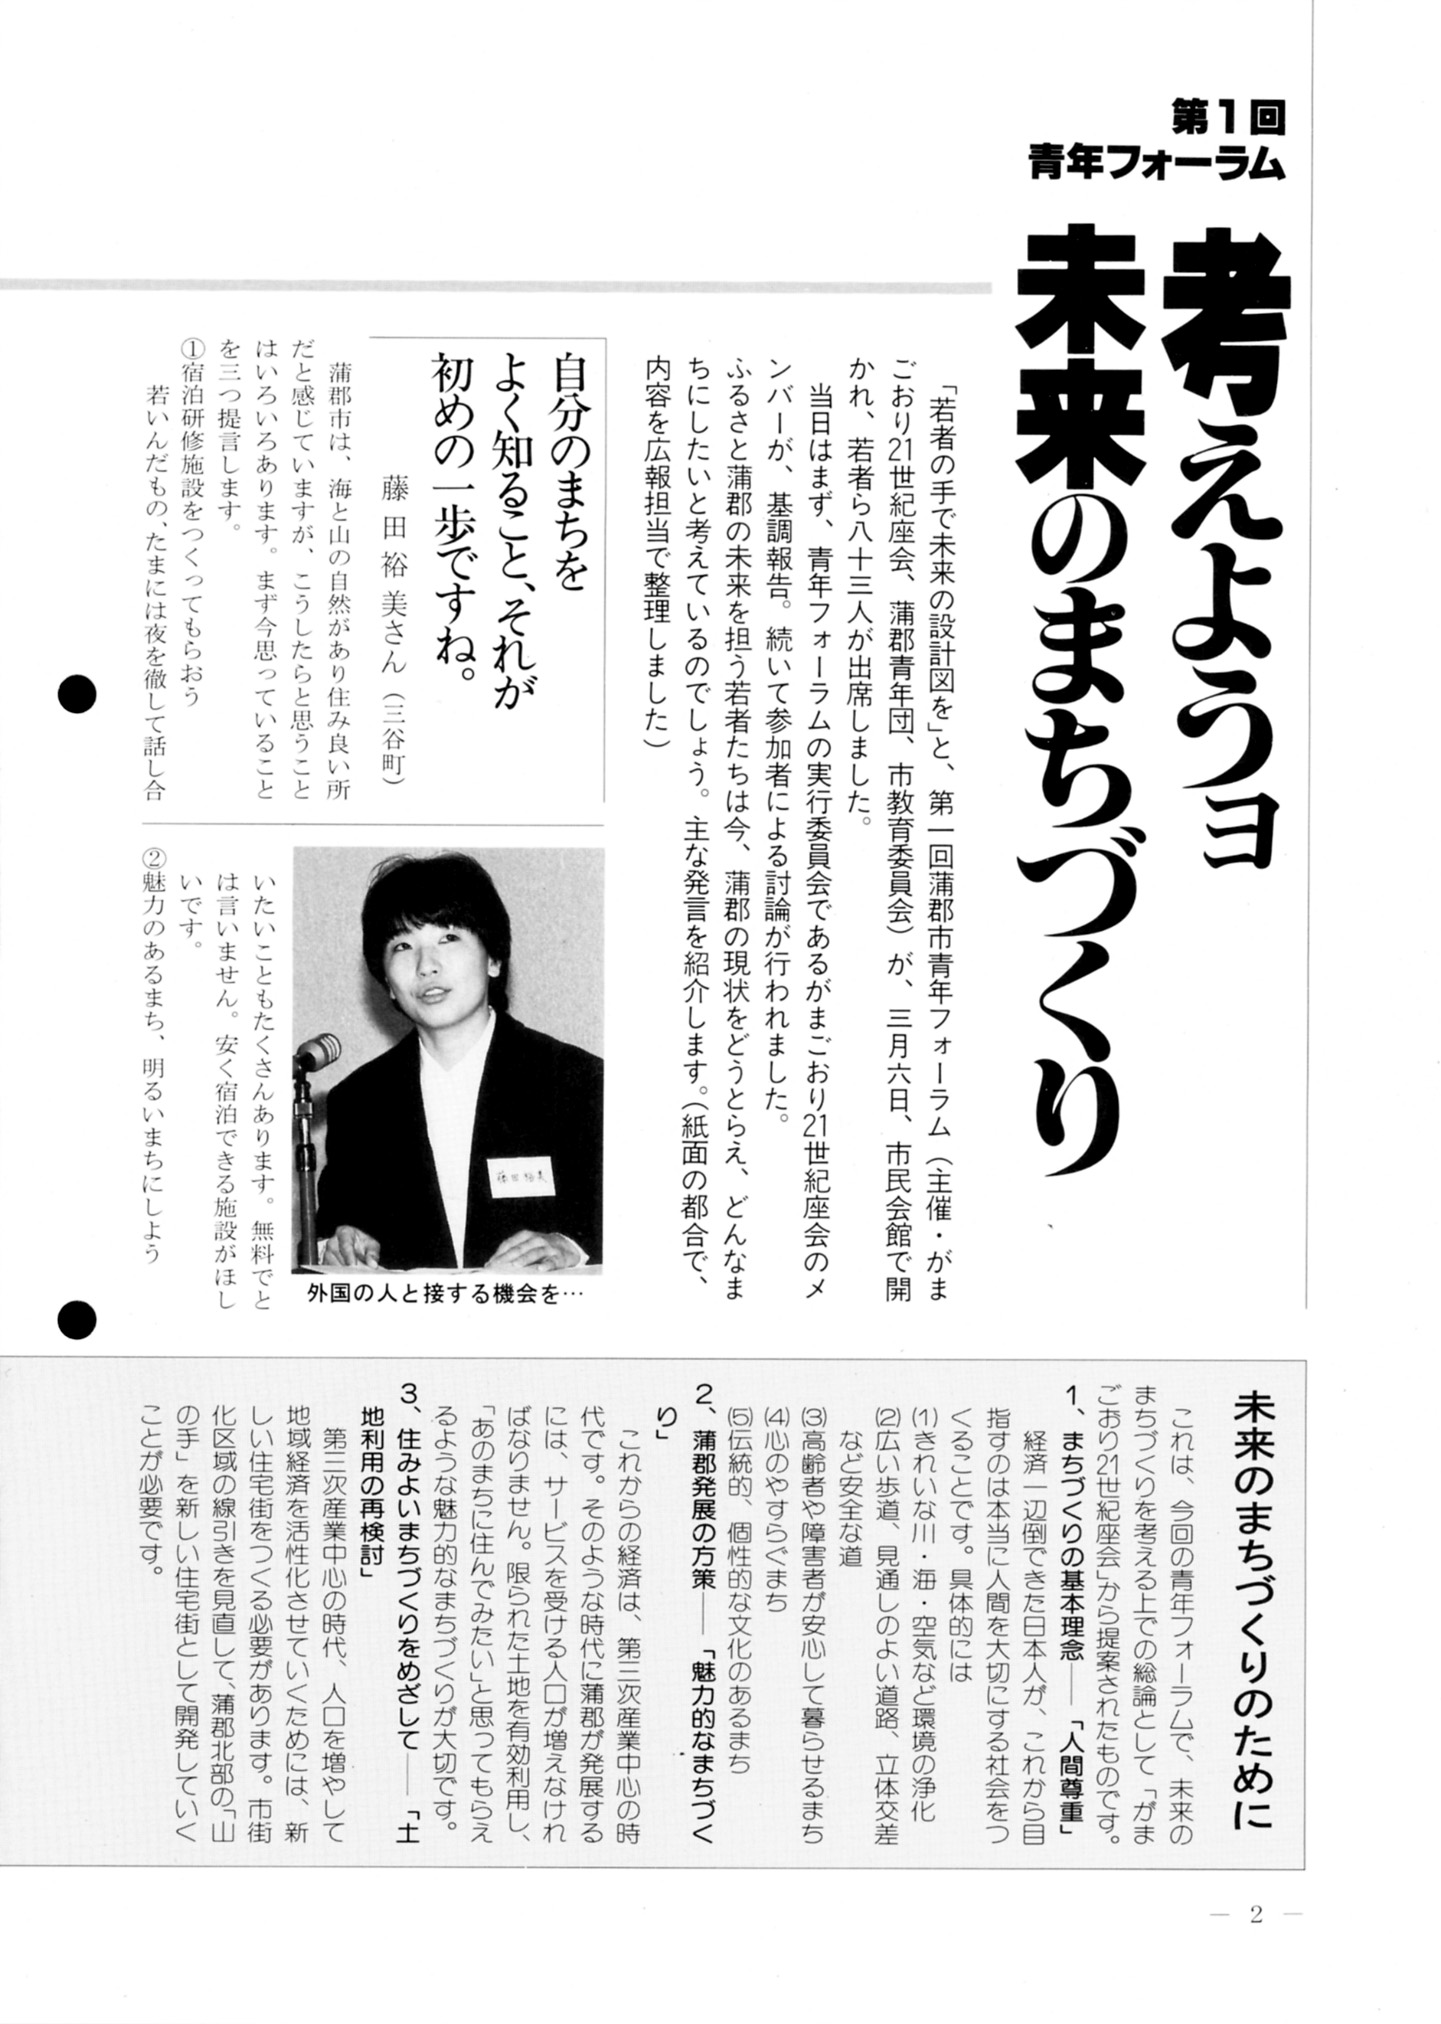 第1回
青年フォーラム
考えようョ
未来のまちづくり
「若者の手で未来の設計図を」と、第一回蒲郡市青年フォーラム（主催・がま
ごおり21世紀座会、蒲郡青年団、市教育委員会）が、三月六日、市民会館で開
かれ、若者ら八十三人が出席しました。
当日はまず、青年フォーラムの実行委員会であるがまごおり21世紀座会のメ
ンバーが、基調報告。続いて参加者による討論が行われました。
ふるさと蒲郡の未来を担う若者たちは今、蒲郡の現状をどうとらえ、どんなま
ちにしたいと考えているのでしょう。主な発言を紹介します。（紙面の都合で、
内容を広報担当で整理しました）
自分のまちを
よく知ること、それが
初めの一歩ですね。
藤田裕美さん（三谷町）
蒲郡市は、海と山の自然があり住み良い所
だと感じていますが、こうしたらと思うこと
はいろいろあります。まず今思っていること
を三つ提言します。
①宿泊研修施設をつくってもらおう
若いんだもの、たまには夜を徹して話し合
藤田裕美
外国の人と接する機会を…
いたいこともたくさんあります。無料でと
は言いません。安く宿泊できる施設がほし
いです。
②魅力のあるまち、明るいまちにしよう
未来のまちづくりのために
これは、今回の青年フォーラムで、未来の
まちづくりを考える上での総論として「がま
ごおり21世紀座会」から提案されたものです。
1、まちづくりの基本理念――「人間尊重」
経済一辺倒できた日本人が、これから目
指すのは本当に人間を大切にする社会をつ
くることです。具体的には
(1)きれいな川・海・空気など環境の浄化
(2)広い歩道、見通しのよい道路、立体交差
など安全な道
(3)高齢者や障害者が安心して暮らせるまち
(4)心のやすらぐまち
(5)伝統的、個性的な文化のあるまち
2、蒲郡発展の方策――「魅力的なまちづく
り」
これからの経済は、第三次産業中心の時
代です。そのような時代に蒲郡が発展する
には、サービスを受ける人口が増えなけれ
ばなりません。限られた土地を有効利用し、
「あのまちに住んでみたい」と思ってもらえ
るような魅力的なまちづくりが大切です。
3、住みよいまちづくりをめざして――「土
地利用の再検討」
第三次産業中心の時代、人口を増やして
地域経済を活性化させていくためには、新
しい住宅街をつくる必要があります。市街
化区域の線引きを見直して、蒲郡北部の「山
の手」を新しい住宅街として開発していく
ことが必要です。
― 2 ―